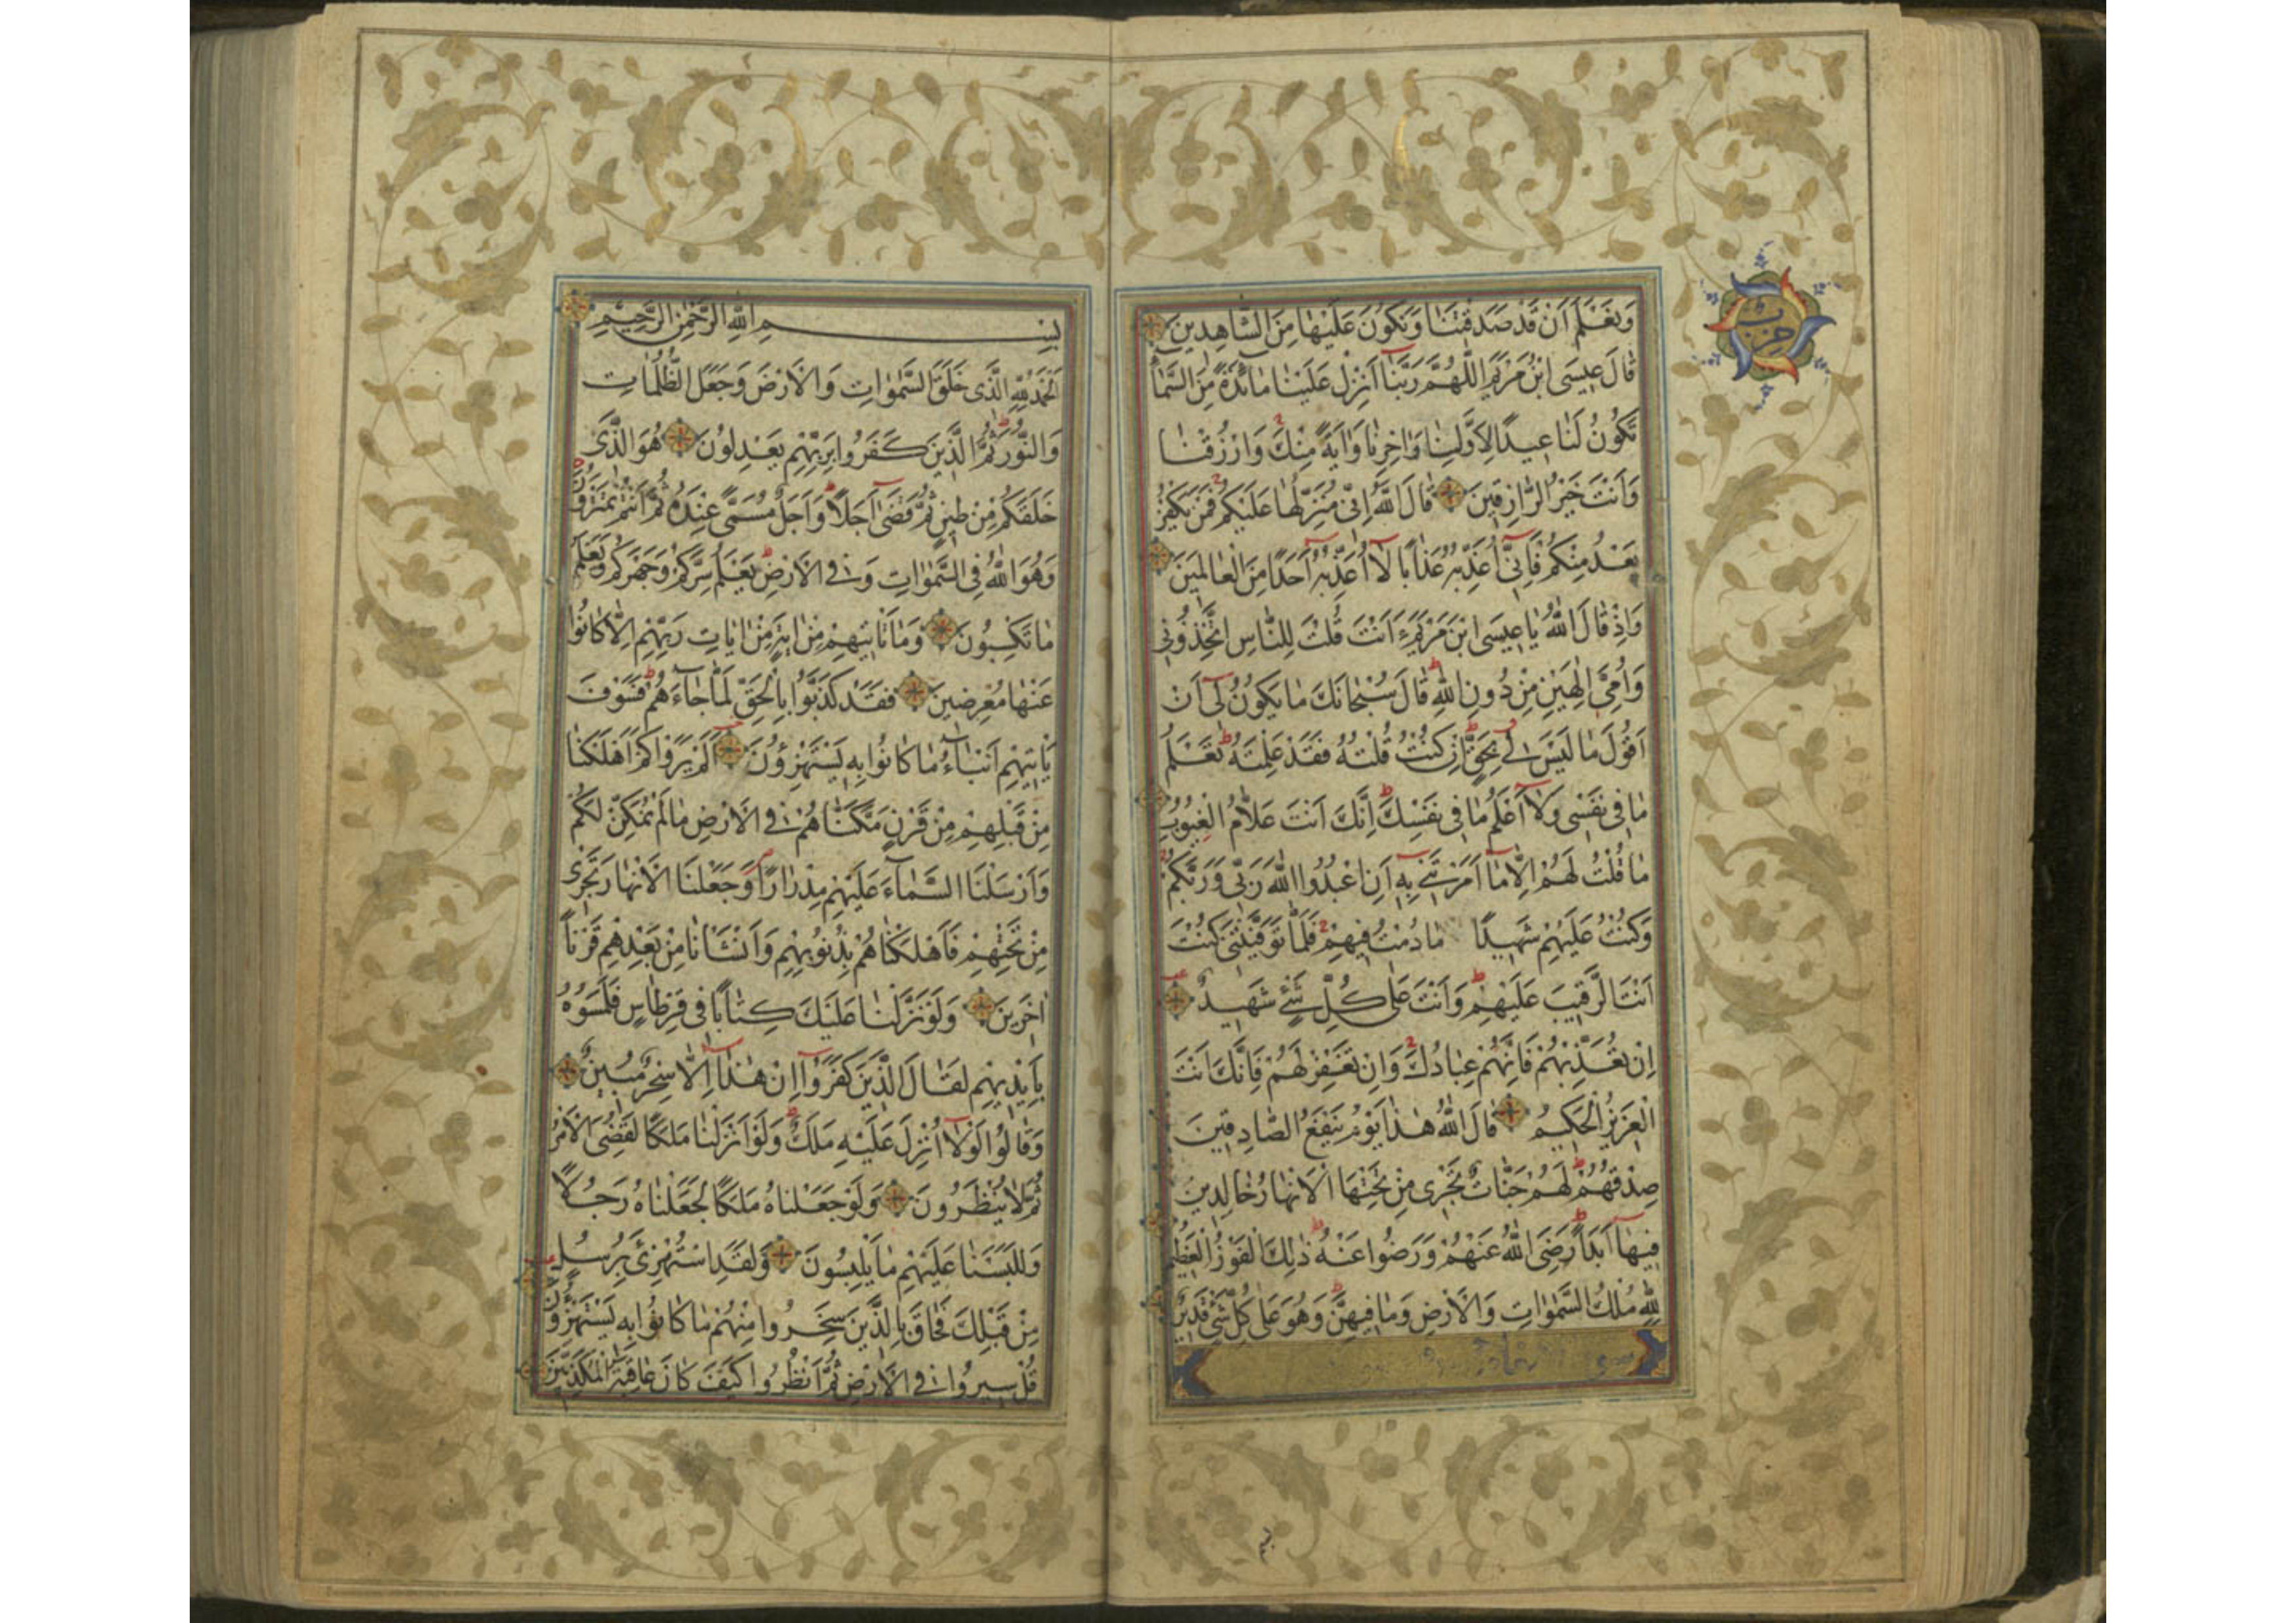 حزب
وَنَعْلَمَ اَنْ قَدْ صَدَقْتَنَا وَنَكُونَ عَلَيْهَا مِنَ الشَّاهِدِينَ
قَالَ عِيسَى ابْنُ مَرْيَمَ اللّٰهُمَّ رَبَّنَا اَنْزِلْ عَلَيْنَا مَائِدَةً مِنَ السَّمَاءِ
تَكُونُ لَنَا عِيدًا لِاَوَّلِنَا وَاٰخِرِنَا وَاٰيَةً مِنْكَ وَارْزُقْنَا
وَاَنْتَ خَيْرُ الرَّازِقِينَ قَالَ اللّٰهُ اِنِّي مُنَزِّلُهَا عَلَيْكُمْ فَمَنْ يَكْفُرْ
بَعْدُ مِنْكُمْ فَاِنِّي اُعَذِّبُهُ عَذَابًا لَا اُعَذِّبُهُ اَحَدًا مِنَ الْعَالَمِينَ
وَاِذْ قَالَ اللّٰهُ يَا عِيسَى ابْنَ مَرْيَمَ ءَاَنْتَ قُلْتَ لِلنَّاسِ اتَّخِذُونِي
وَاُمِّيَ اِلٰهَيْنِ مِنْ دُونِ اللّٰهِ قَالَ سُبْحَانَكَ مَا يَكُونُ لِي اَنْ
اَقُولَ مَا لَيْسَ لِي بِحَقٍّ اِنْ كُنْتُ قُلْتُهُ فَقَدْ عَلِمْتَهُ تَعْلَمُ
مَا فِي نَفْسِي وَلَا اَعْلَمُ مَا فِي نَفْسِكَ اِنَّكَ اَنْتَ عَلَّامُ الْغُيُوبِ
مَا قُلْتُ لَهُمْ اِلَّا مَا اَمَرْتَنِي بِهِ اَنِ اعْبُدُوا اللّٰهَ رَبِّي وَرَبَّكُمْ
وَكُنْتُ عَلَيْهِمْ شَهِيدًا مَا دُمْتُ فِيهِمْ فَلَمَّا تَوَفَّيْتَنِي كُنْتَ
اَنْتَ الرَّقِيبَ عَلَيْهِمْ وَاَنْتَ عَلٰى كُلِّ شَيْءٍ شَهِيدٌ
اِنْ تُعَذِّبْهُمْ فَاِنَّهُمْ عِبَادُكَ وَاِنْ تَغْفِرْ لَهُمْ فَاِنَّكَ اَنْتَ
الْعَزِيزُ الْحَكِيمُ قَالَ اللّٰهُ هٰذَا يَوْمُ يَنْفَعُ الصَّادِقِينَ
صِدْقُهُمْ لَهُمْ جَنَّاتٌ تَجْرِي مِنْ تَحْتِهَا الْاَنْهَارُ خَالِدِينَ
فِيهَا اَبَدًا رَضِيَ اللّٰهُ عَنْهُمْ وَرَضُوا عَنْهُ ذٰلِكَ الْفَوْزُ الْعَظِيمُ
لِلّٰهِ مُلْكُ السَّمٰوَاتِ وَالْاَرْضِ وَمَا فِيهِنَّ وَهُوَ عَلٰى كُلِّ شَيْءٍ قَدِيرٌ
بِسْمِ اللّٰهِ الرَّحْمٰنِ الرَّحِيمِ
اَلْحَمْدُ لِلّٰهِ الَّذِي خَلَقَ السَّمٰوَاتِ وَالْاَرْضَ وَجَعَلَ الظُّلُمَاتِ
وَالنُّورَ ثُمَّ الَّذِينَ كَفَرُوا بِرَبِّهِمْ يَعْدِلُونَ هُوَ الَّذِي
خَلَقَكُمْ مِنْ طِينٍ ثُمَّ قَضٰى اَجَلًا وَاَجَلٌ مُسَمًّى عِنْدَهُ ثُمَّ اَنْتُمْ تَمْتَرُونَ
وَهُوَ اللّٰهُ فِي السَّمٰوَاتِ وَفِي الْاَرْضِ يَعْلَمُ سِرَّكُمْ وَجَهْرَكُمْ وَيَعْلَمُ
مَا تَكْسِبُونَ وَمَا تَاْتِيهِمْ مِنْ اٰيَةٍ مِنْ اٰيَاتِ رَبِّهِمْ اِلَّا كَانُوا
عَنْهَا مُعْرِضِينَ فَقَدْ كَذَّبُوا بِالْحَقِّ لَمَّا جَاءَهُمْ فَسَوْفَ
يَاْتِيهِمْ اَنْبَاءُ مَا كَانُوا بِهِ يَسْتَهْزِؤُنَ اَلَمْ يَرَوْا كَمْ اَهْلَكْنَا
مِنْ قَبْلِهِمْ مِنْ قَرْنٍ مَكَّنَّاهُمْ فِي الْاَرْضِ مَا لَمْ نُمَكِّنْ لَكُمْ
وَاَرْسَلْنَا السَّمَاءَ عَلَيْهِمْ مِدْرَارًا وَجَعَلْنَا الْاَنْهَارَ تَجْرِي
مِنْ تَحْتِهِمْ فَاَهْلَكْنَاهُمْ بِذُنُوبِهِمْ وَاَنْشَاْنَا مِنْ بَعْدِهِمْ قَرْنًا
اٰخَرِينَ وَلَوْ نَزَّلْنَا عَلَيْكَ كِتَابًا فِي قِرْطَاسٍ فَلَمَسُوهُ
بِاَيْدِيهِمْ لَقَالَ الَّذِينَ كَفَرُوا اِنْ هٰذَا اِلَّا سِحْرٌ مُبِينٌ
وَقَالُوا لَوْلَا اُنْزِلَ عَلَيْهِ مَلَكٌ وَلَوْ اَنْزَلْنَا مَلَكًا لَقُضِيَ الْاَمْرُ
ثُمَّ لَا يُنْظَرُونَ وَلَوْ جَعَلْنَاهُ مَلَكًا لَجَعَلْنَاهُ رَجُلًا
وَلَلَبَسْنَا عَلَيْهِمْ مَا يَلْبِسُونَ وَلَقَدِ اسْتُهْزِئَ بِرُسُلٍ
مِنْ قَبْلِكَ فَحَاقَ بِالَّذِينَ سَخِرُوا مِنْهُمْ مَا كَانُوا بِهِ يَسْتَهْزِؤُنَ
قُلْ سِيرُوا فِي الْاَرْضِ ثُمَّ انْظُرُوا كَيْفَ كَانَ عَاقِبَةُ الْمُكَذِّبِينَ